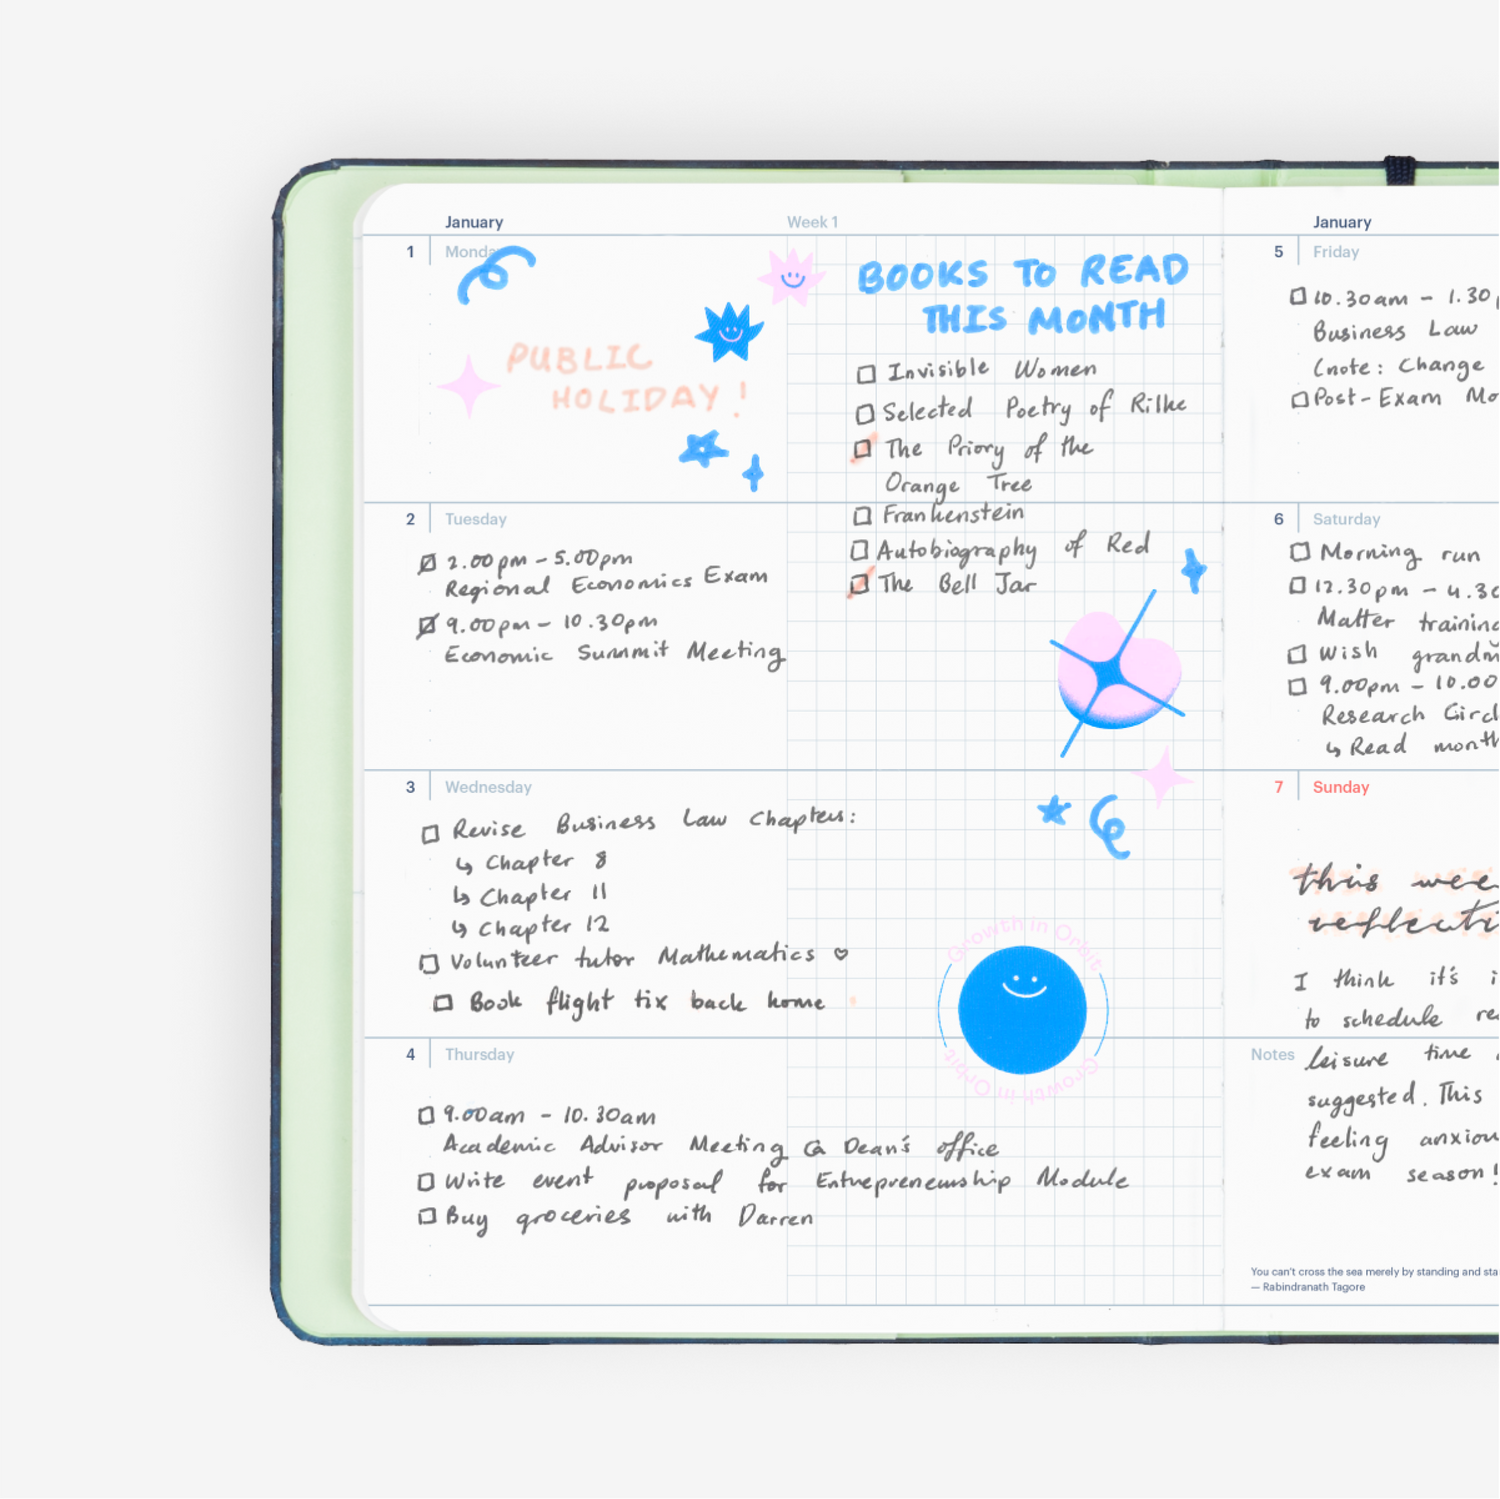 January
Week 1
1
Monday
PUBLIC
HOLIDAY!
BOOKS TO READ
THIS MONTH
Invisible Women
Selected Poetry of Rilke
The Priory of the
Orange Tree
Frankenstein
Autobiography of Red
The Bell Jar
2
Tuesday
2.00pm - 5.00pm
Regional Economics Exam
9.00pm - 10.30pm
Economic Summit Meeting
3
Wednesday
Revise Business Law Chapters:
↳ Chapter 8
↳ Chapter 11
↳ Chapter 12
Volunteer tutor Mathematics ♡
Book flight tix back home
Growth in Orbit
Growth in Orbit
4
Thursday
9.00am - 10.30am
Academic Advisor Meeting @ Dean's office
Write event proposal for Entrepreneurship Module
Buy groceries with Darren
January
5
Friday
10.30am - 1.30p
Business Law
(note: Change
Post-Exam Mo
6
Saturday
Morning run
12.30pm - 4.30
Matter training
Wish grandm
9.00pm - 10.00
Research Circl
↳ Read month
7
Sunday
this wee
reflecti
I think it's i
to schedule re
Notes
leisure time
suggested. This
feeling anxiou
exam season!
You can't cross the sea merely by standing and sta
— Rabindranath Tagore